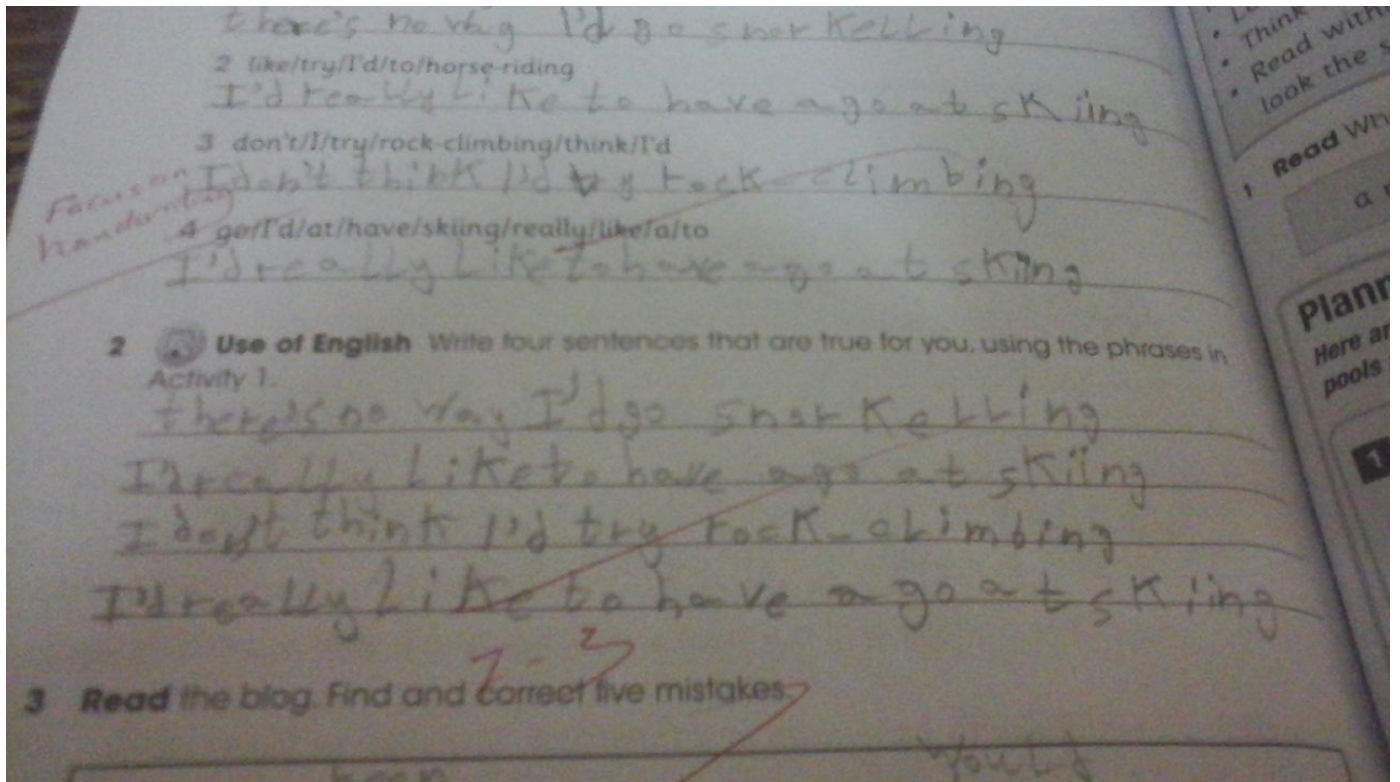 there's no way I'd go snorkelling
2 like/try/I'd/to/horse-riding
I'd really Like to have a go at skiing
3 don't/I/try/rock-climbing/think/I'd
I don't think I'd try rock-climbing
Focus on
handwriting
4 go/I'd/at/have/skiing/really/like/a/to
I'd really Like to have a go at skiing
2 Use of English Write four sentences that are true for you, using the phrases in
Activity 1.
there's no way I'd go snorkelling
I'd really Like to have a go at skiing
I don't think I'd try rock-climbing
I'd really Like to have a go at skiing
3 Read the blog. Find and correct five mistakes.
keen would
Think
• Read with
look the s
1 Read Wh
a
Plann
Here ar
pools
1